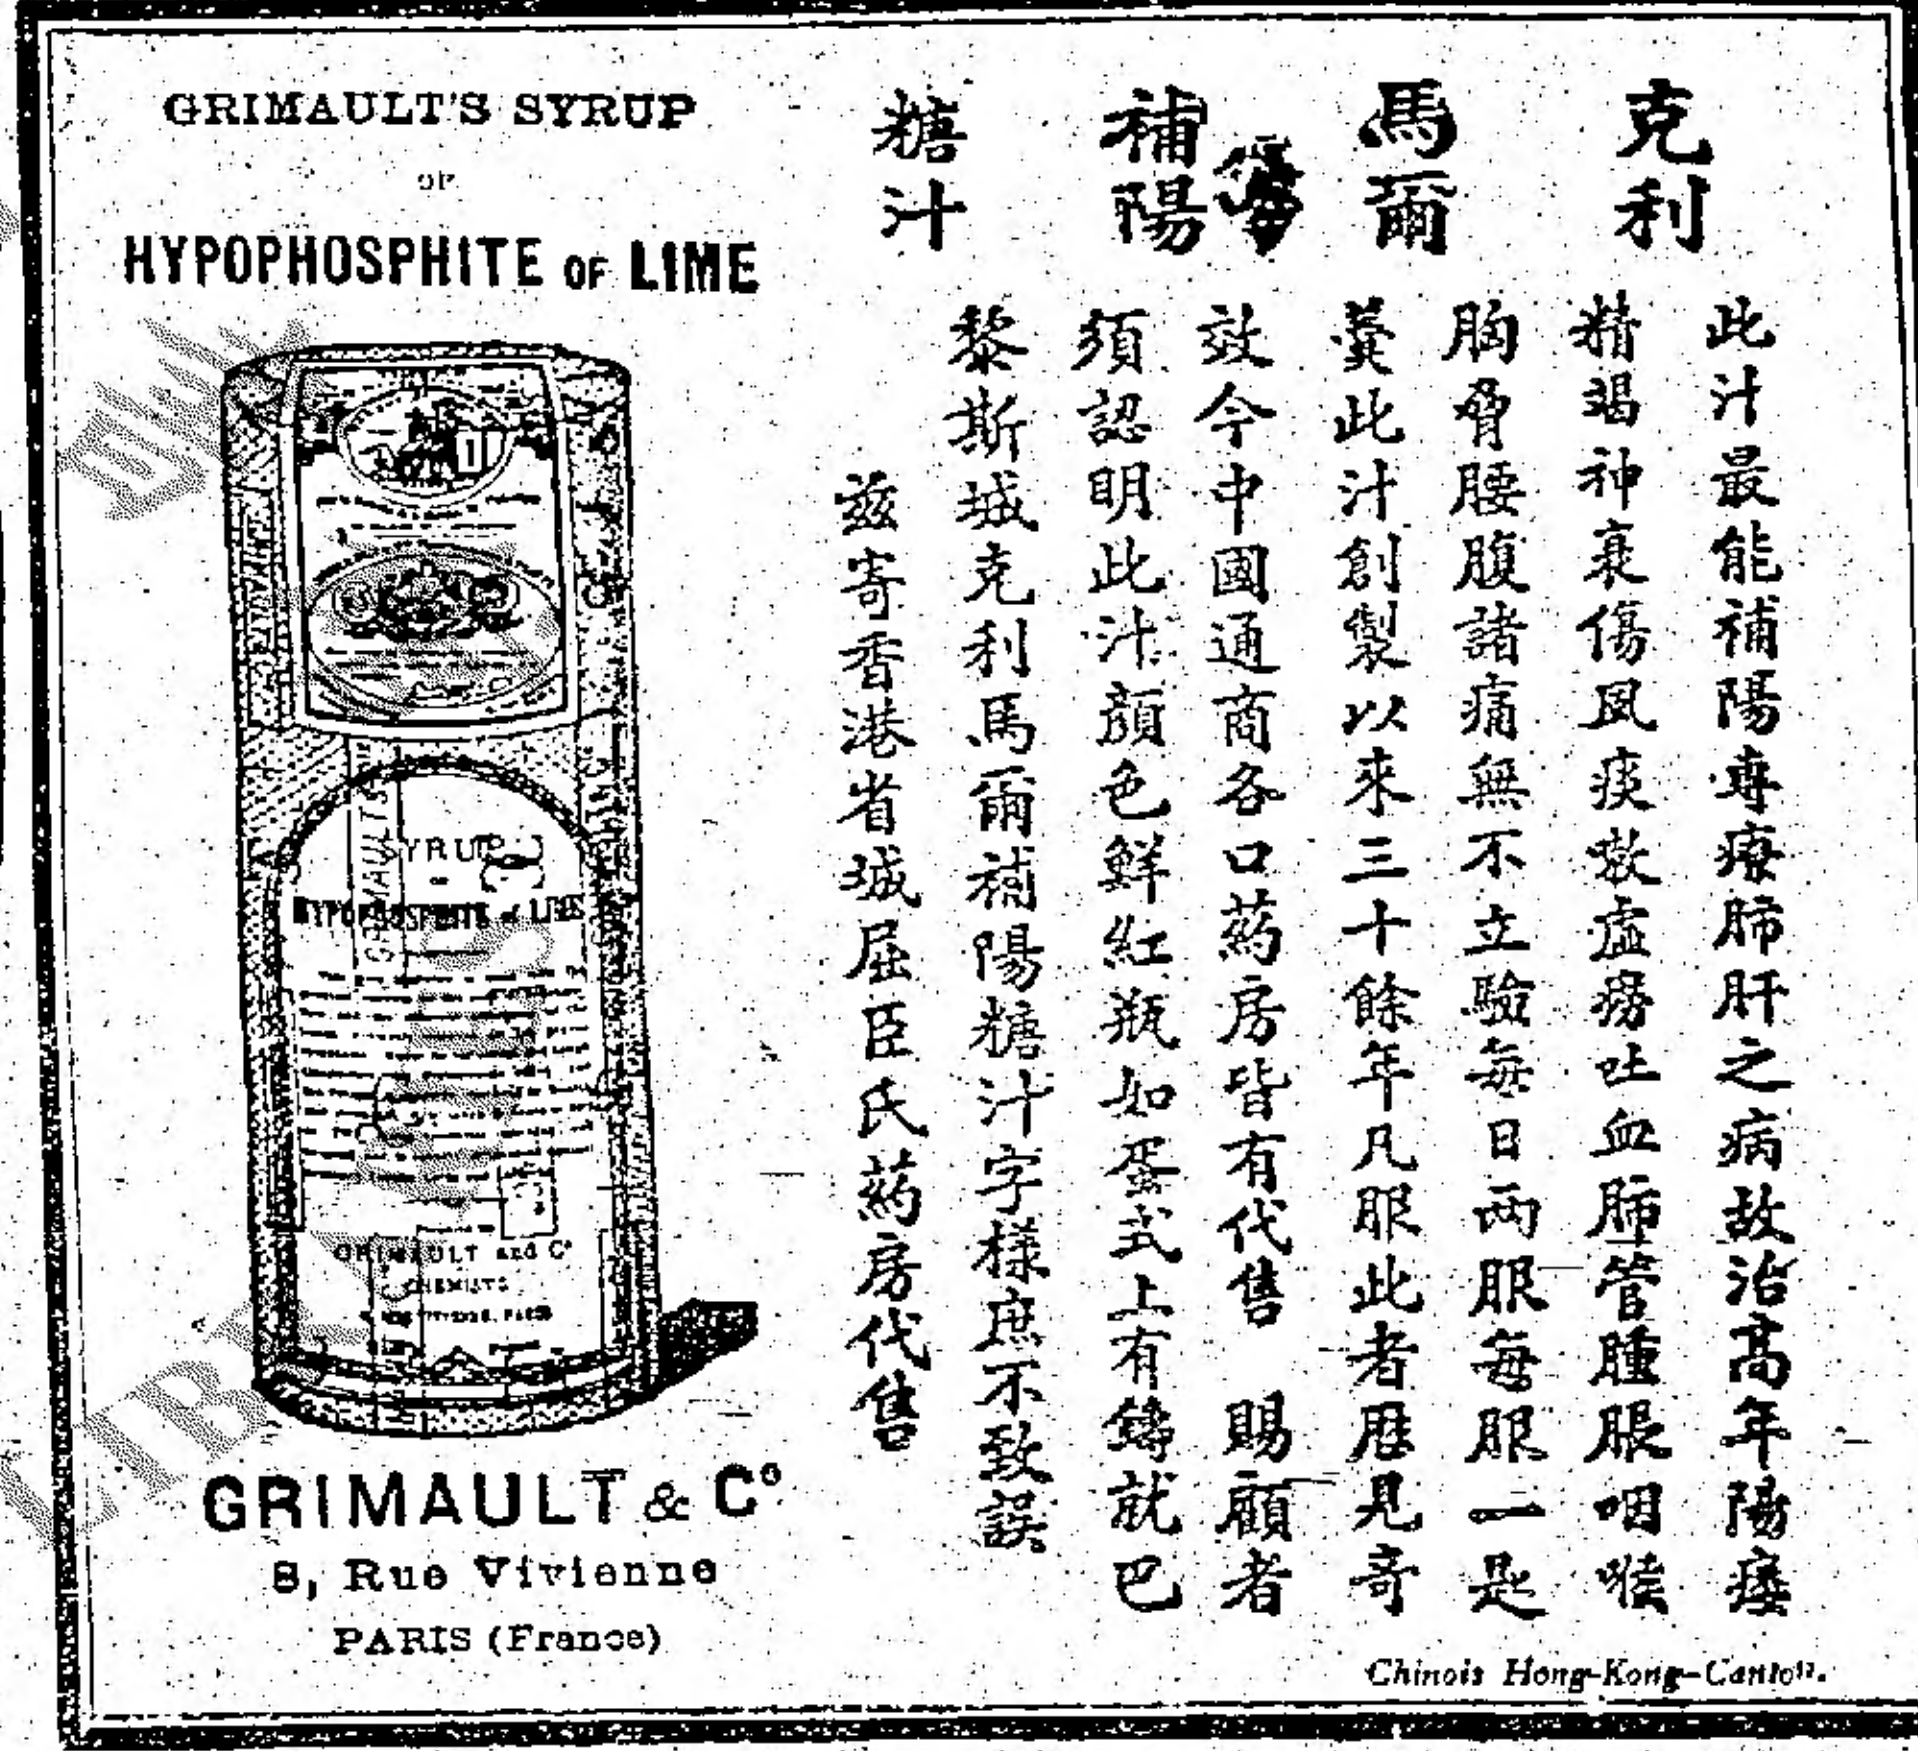 GRIMAULT'S SYRUP
OF
HYPOPHOSPHITE OF LIME
SYRUP
HYPOPHOSPHITE of LIME
GRIMAULT and Cº
CHEMISTS
GRIMAULT & Cº
8, Rue Vivienne
PARIS (France)
克利
馬爾
補陽
糖汁
此汁最能補陽專療肺肝之病故治高年陽痿
精竭神衰傷風痰嗽虛癆吐血肺管腫脹咽喉
胸脅腰腹諸痛無不立驗每日兩服每服一匙
羹此汁創製以來三十餘年凡服此者歷見奇
效今中國通商各口葯房皆有代售 賜顧者
須認明此汁顏色鮮紅瓶如蛋式上有鑄就巴
黎斯城克利馬爾補陽糖汁字樣庶不致誤
茲寄香港省城屈臣氏葯房代售
Chinois Hong-Kong-Canton.